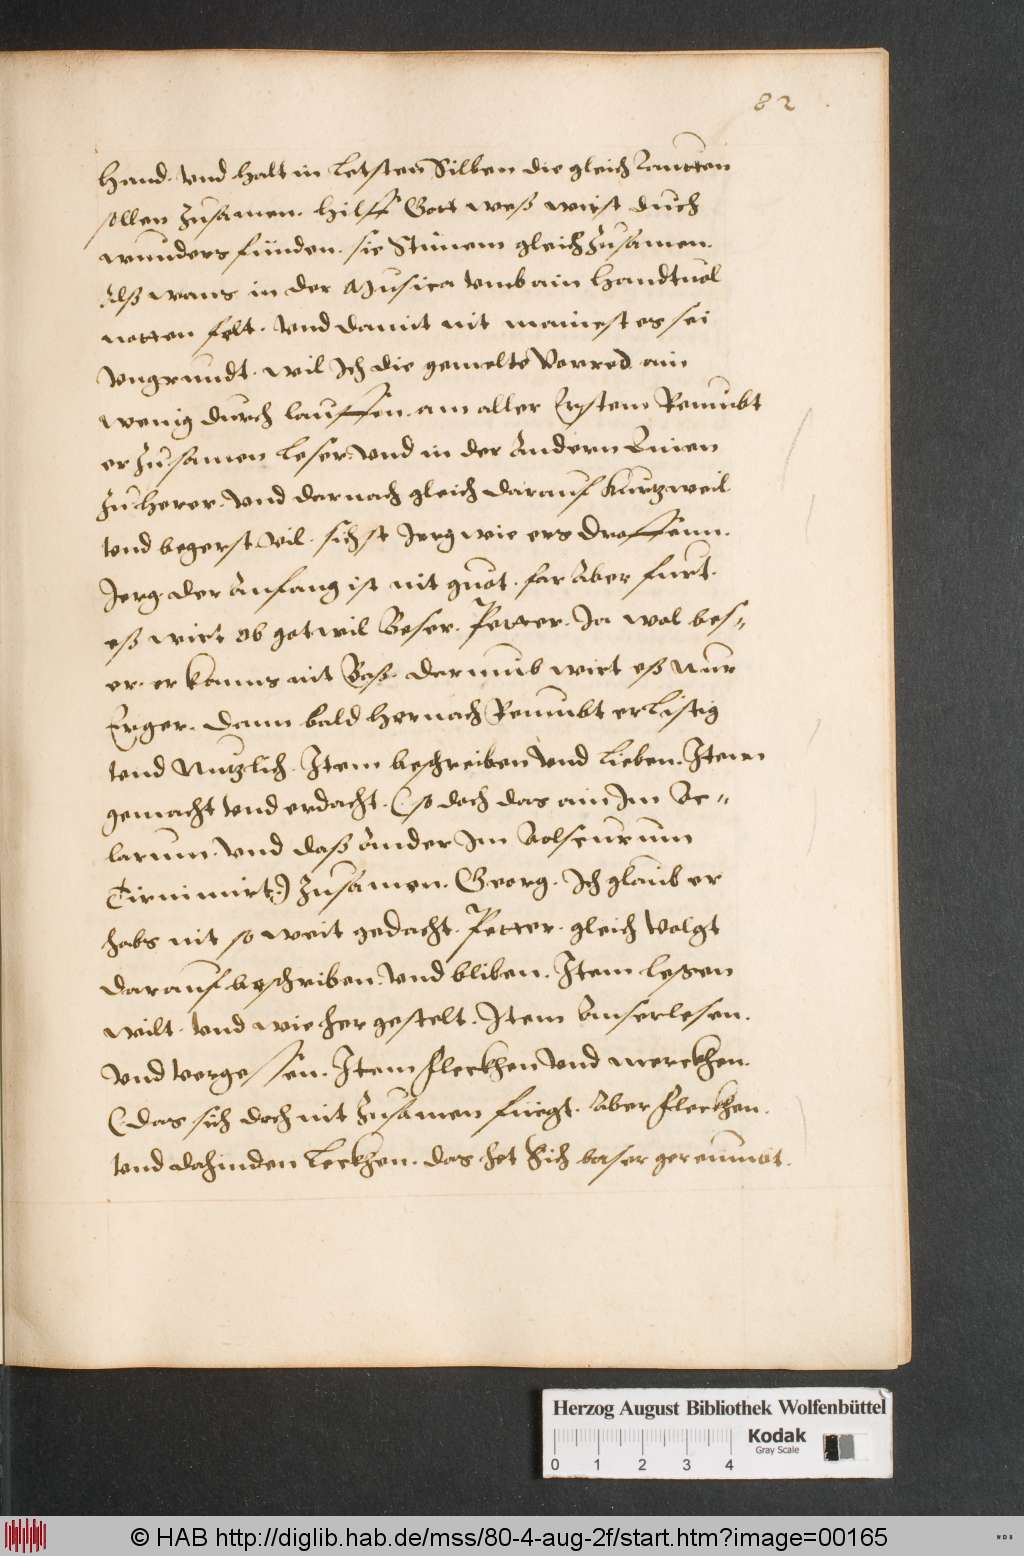 82
hand. Vnd halt in letsten Silben die gleich Lautten
sollen Zusamen. hilff Gott weß wirst duch
wunders fünden. sie Stimem gleich Zusamen.
Alß wans in der Musica vmb ain handtuol
notten felt. Vnd damit nit mainest es sei
Vngrundt. wil Ich die gemelte Vorred ain
wenig durch lauffen. am aller Erstem Remubt
er Zu samen leser. Vnd in der Andern Linien
Zu herer. Vnd darnach gleich darauf Kurtzweil
vnd begerst Vil. sichst Jerg wie ers droffenn.
Jerg. der Anfang ist nit guot. far Aber furt.
eß wirt ob got wil Beser. Petter. Ja wol bes=
er. er kanns nit Baß. darumb wirt eß Nur
Erger. dann bald hernach Remubt er Listig
vnd Nutzlich. Item beschreiben Vnd lieben. Item
gemacht vnd erdacht. (so doch das ain Im Ac=
larum. Vnd daß Ander Im Aolscurum
Tirminirt) Zusamen. Georg. Ich glaub er
habs nit so weit gedacht. Petter. gleich Volgt
darauf beschriben. Vnd bliben. Item lesen
wilt. Vnd wie her gestelt. Item Auserlesen.
Vnd vergessen. Item fleckhen Vnd merckhen.
(das sich doch nit Zusamen fuegt. Aber fleckhen.
vnd dahinden leckhen. das het Sich baser gereumbt.
Herzog August Bibliothek Wolfenbüttel
Kodak
Gray Scale
0 1 2 3 4
© HAB http://diglib.hab.de/mss/80-4-aug-2f/start.htm?image=00165